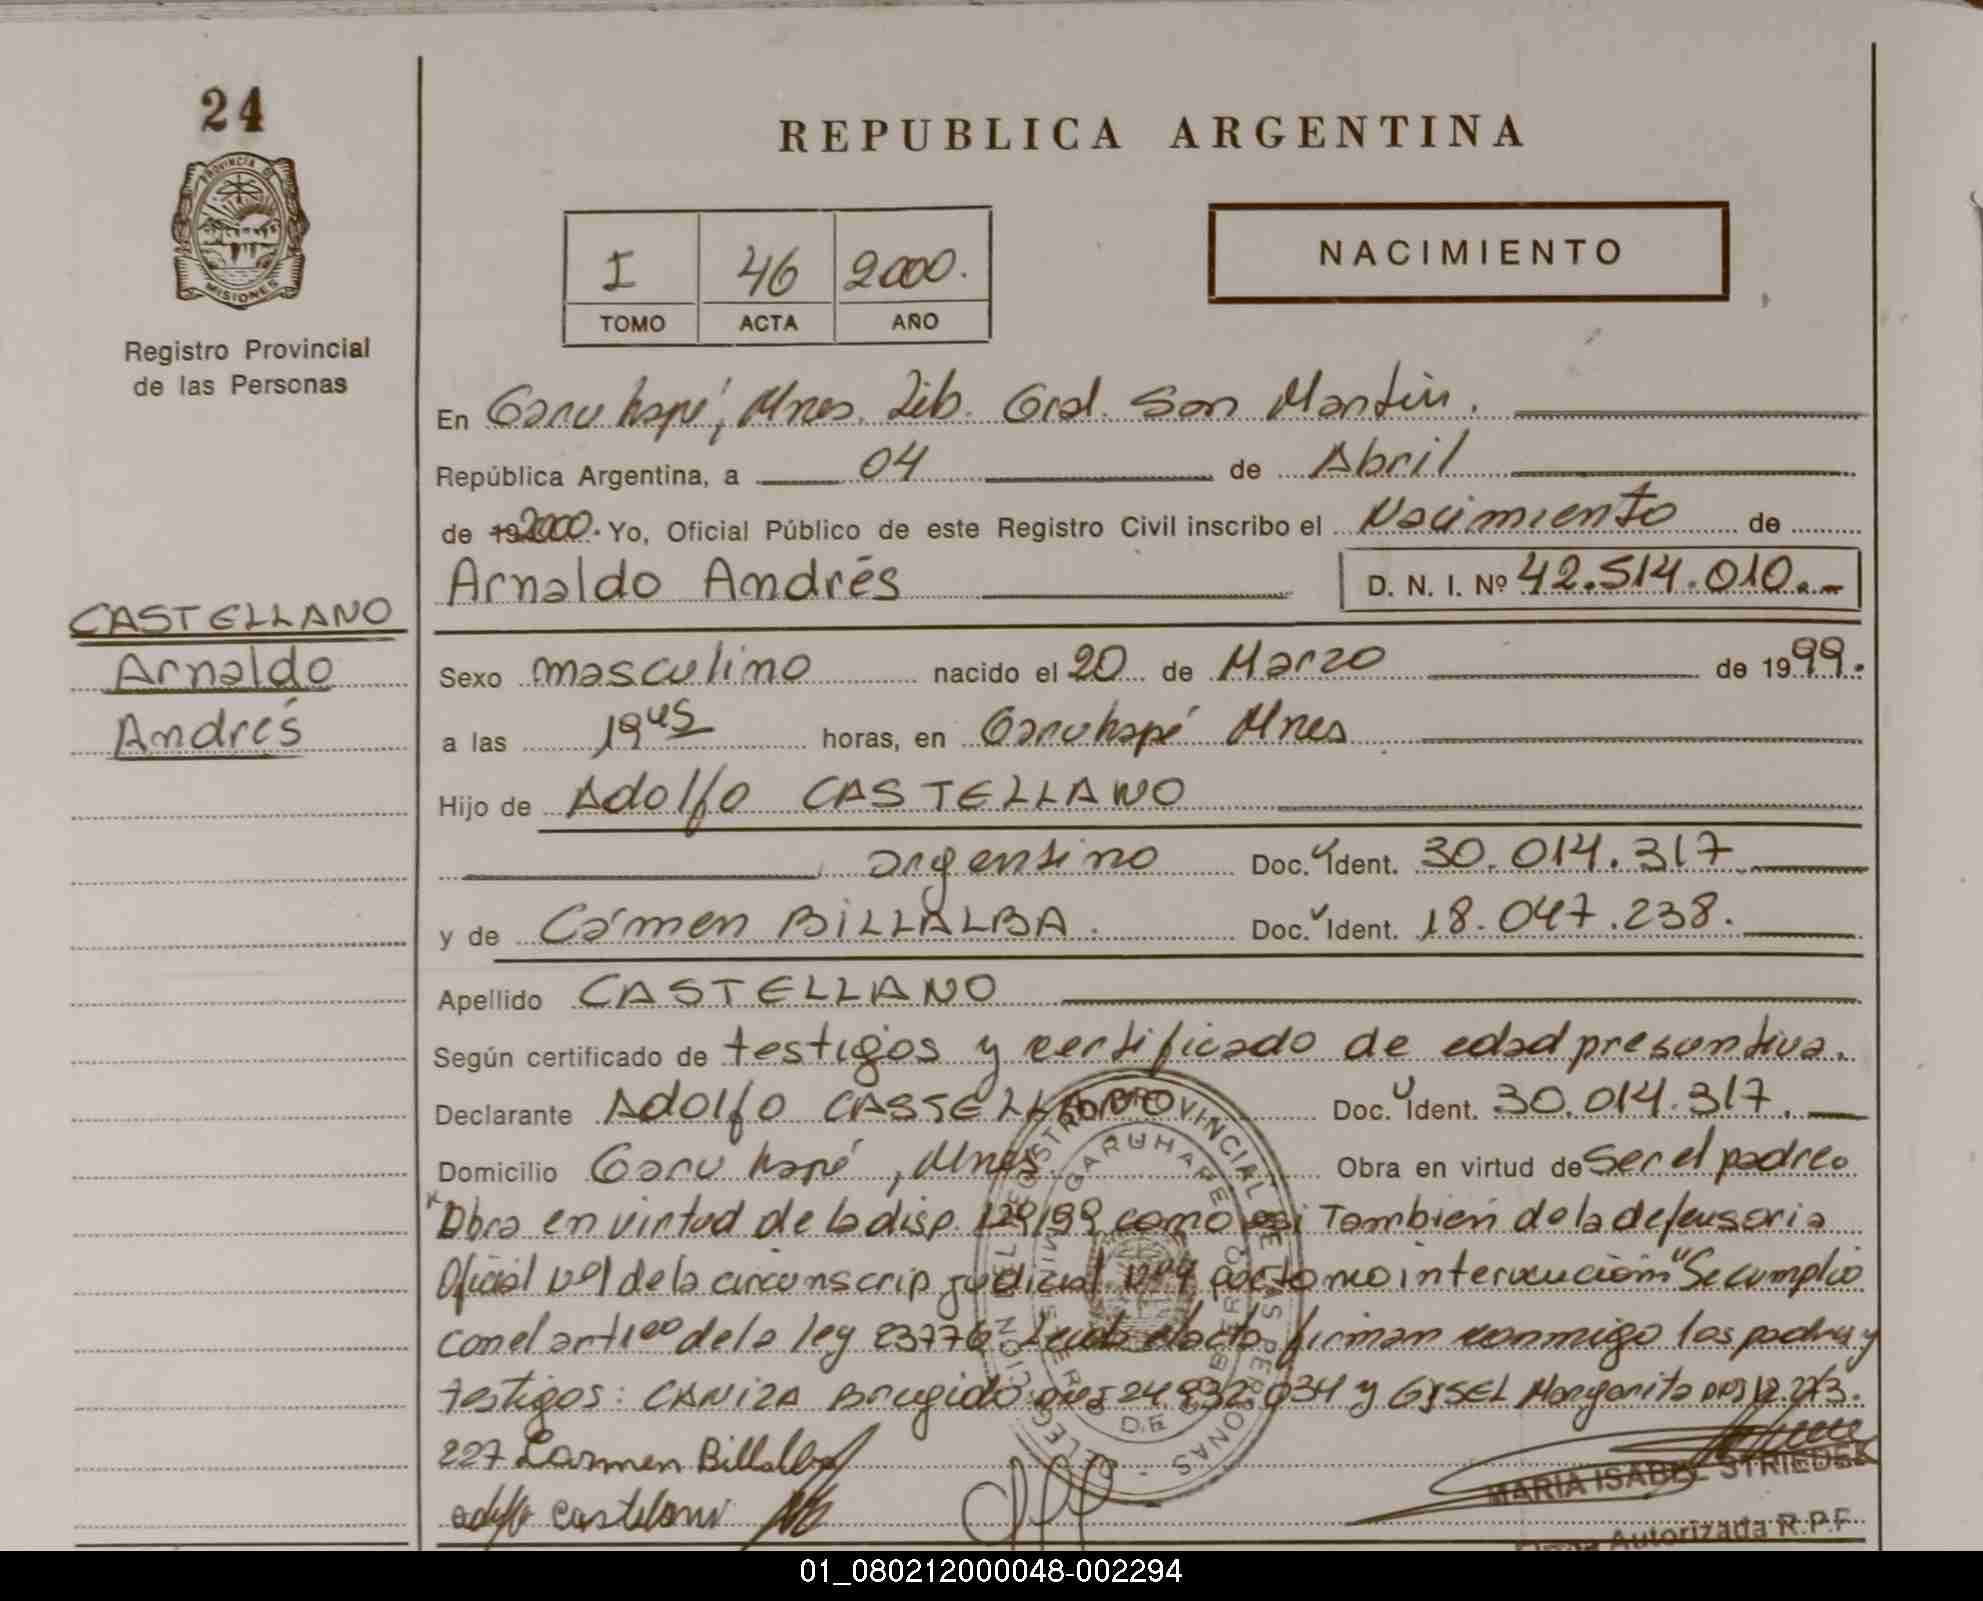 24
PROVINCIA DE
MISIONES
Registro Provincial
de las Personas
CASTELLANO
Arnaldo
Andrés
REPUBLICA ARGENTINA
I 46 2000.
TOMO ACTA AÑO
NACIMIENTO
En Garuhapé, Mnes. Lib. Gral. San Martín.
República Argentina, a 04 de Abril
de 192000. Yo, Oficial Público de este Registro Civil inscribo el Nacimiento de
Arnaldo Andrés D. N. I. Nº 42.514.010.-
Sexo masculino nacido el 20 de Marzo de 1999.
a las 19 45 horas, en Garuhapé Mnes
Hijo de Adolfo CASTELLANO
argentino Doc. Ident. 30.014.317
y de Cármen BILLALBA. Doc. Ident. 18.047.238.
Apellido CASTELLANO
Según certificado de testigos y certificado de edad presuntiva.
Declarante Adolfo CASSELLANO Doc. Ident. 30.014.317.
Domicilio Garuhapé, Mnes. Obra en virtud de Ser el padre
Obra en virtud de la disp. 129/99 como asi También de la defensoria
Oficial Nº1 de la circunscrip judicial Nº4 intervención "Se cumplio
con el art 1º de la ley 23776 Leida el acta firman conmigo los padres y
testigos: CANIZA Brugido DNI 24.932.034 y GYSEL Margarita DNI 12.273.
227 Carmen Billalba
adolfo castelano
MARIA ISABEL STRIEDER
Firma Autorizada R.P.F
REGISTRO PROVINCIAL DE LAS PERSONAS
GARUHAPE
MISIONES
01_080212000048-002294